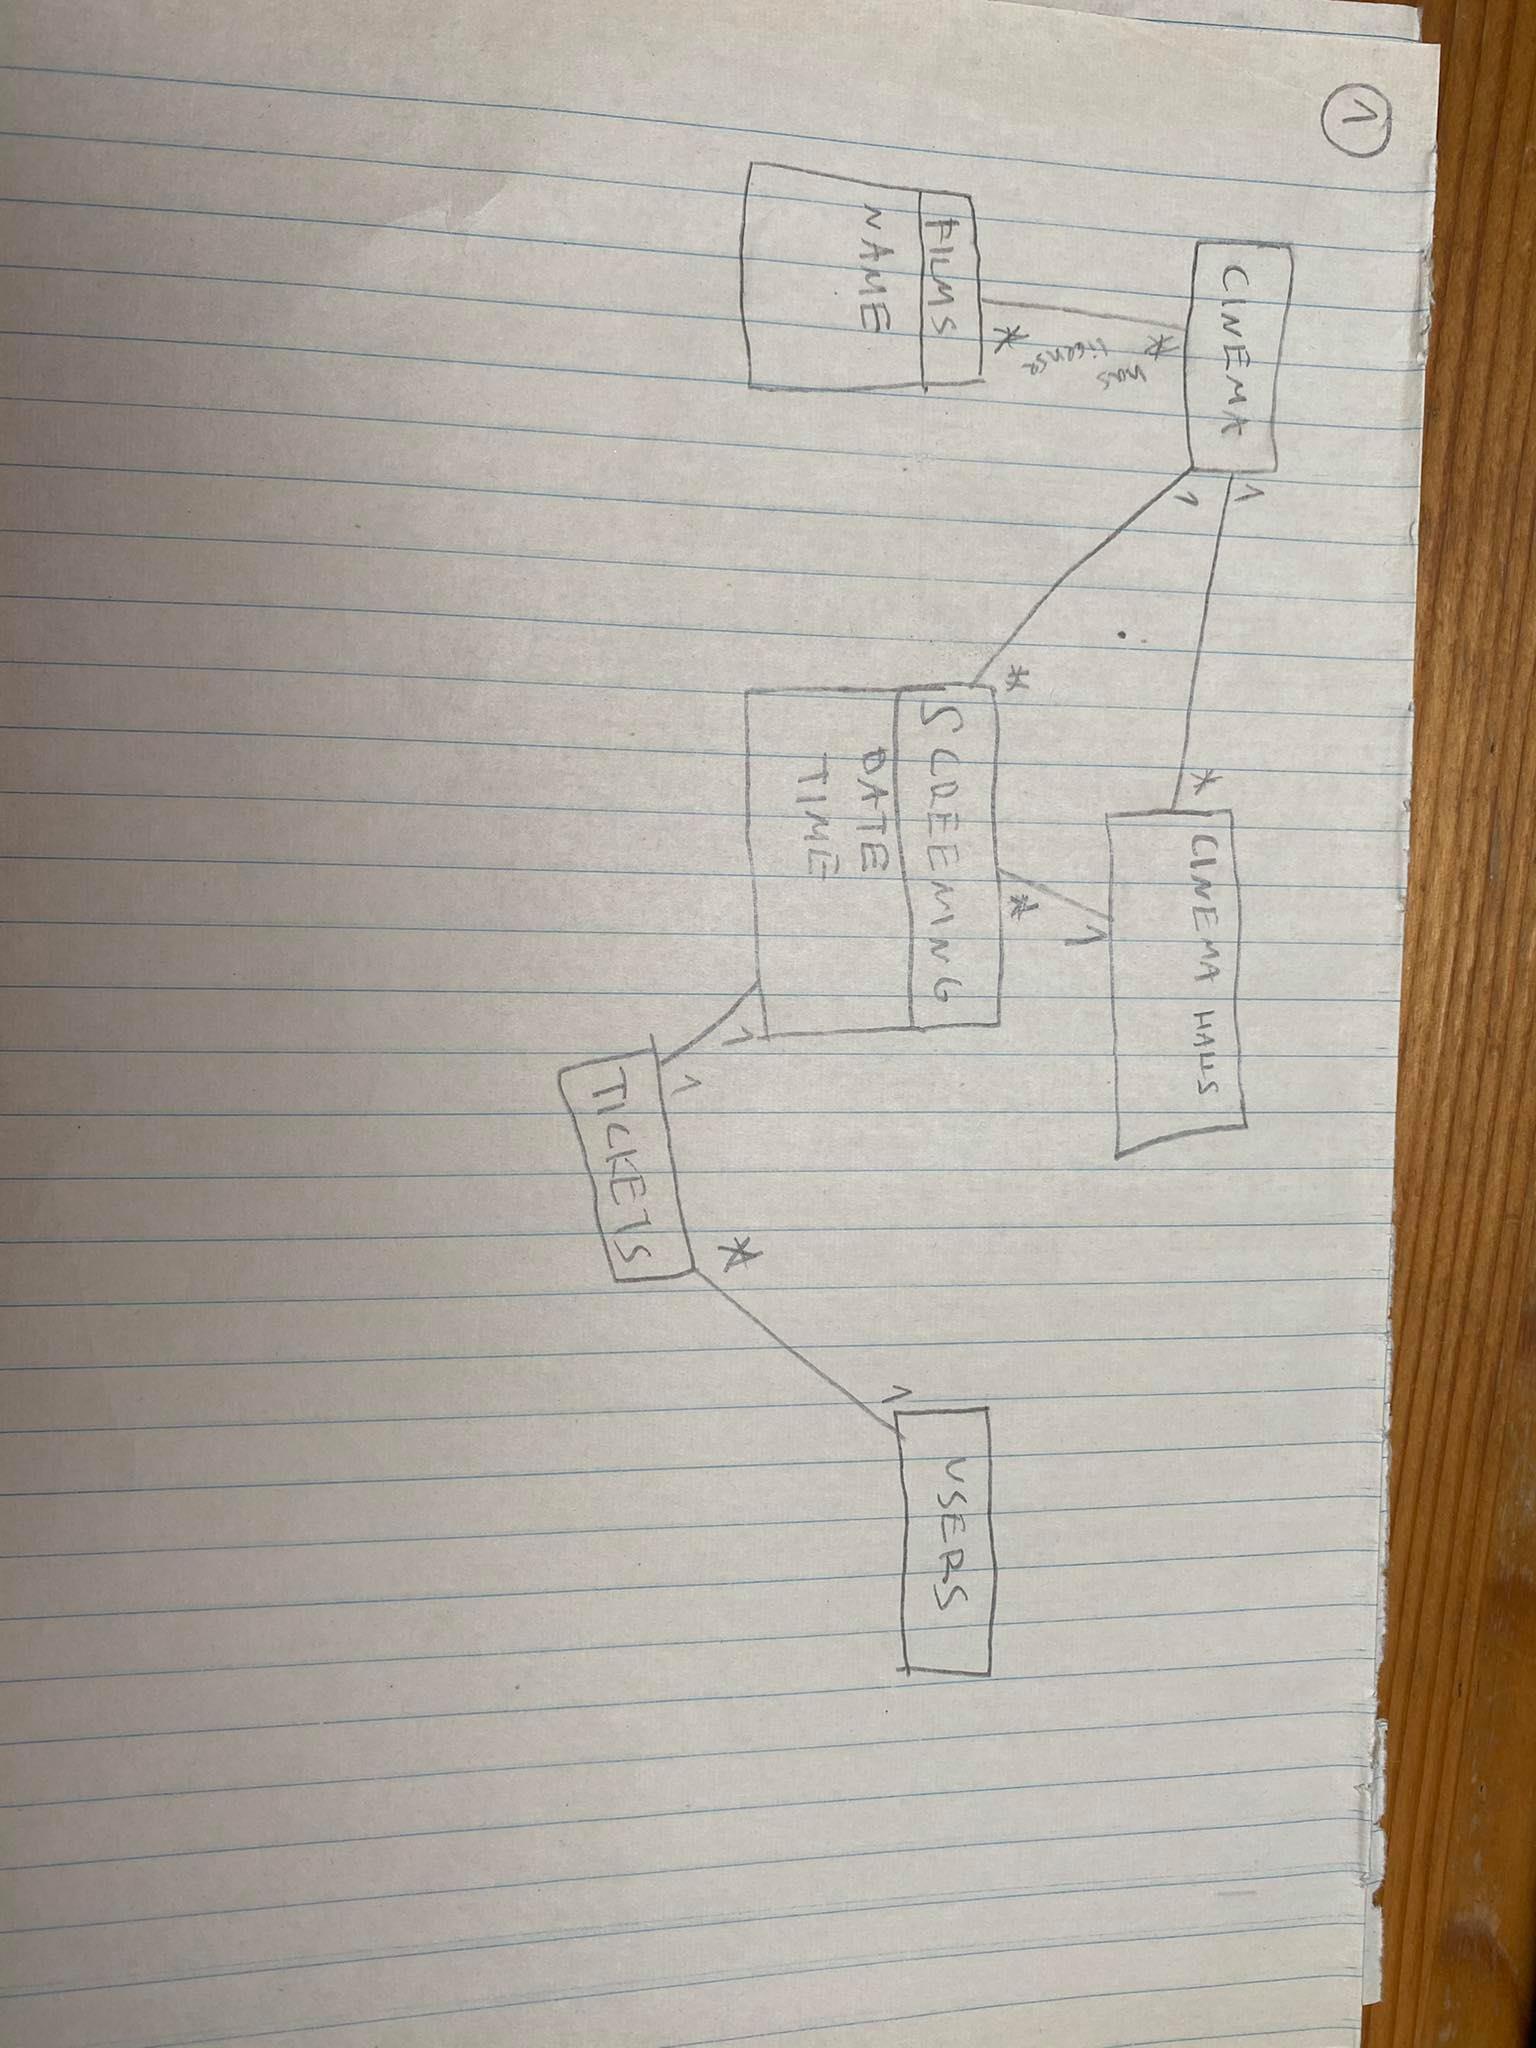 1
CINEMA
1
1
*
CINEMA HALLS
*
has license
*
1
*
*
FILMS
NAME
SCREENING
DATE
TIME
1
1
USERS
1
*
TICKETS